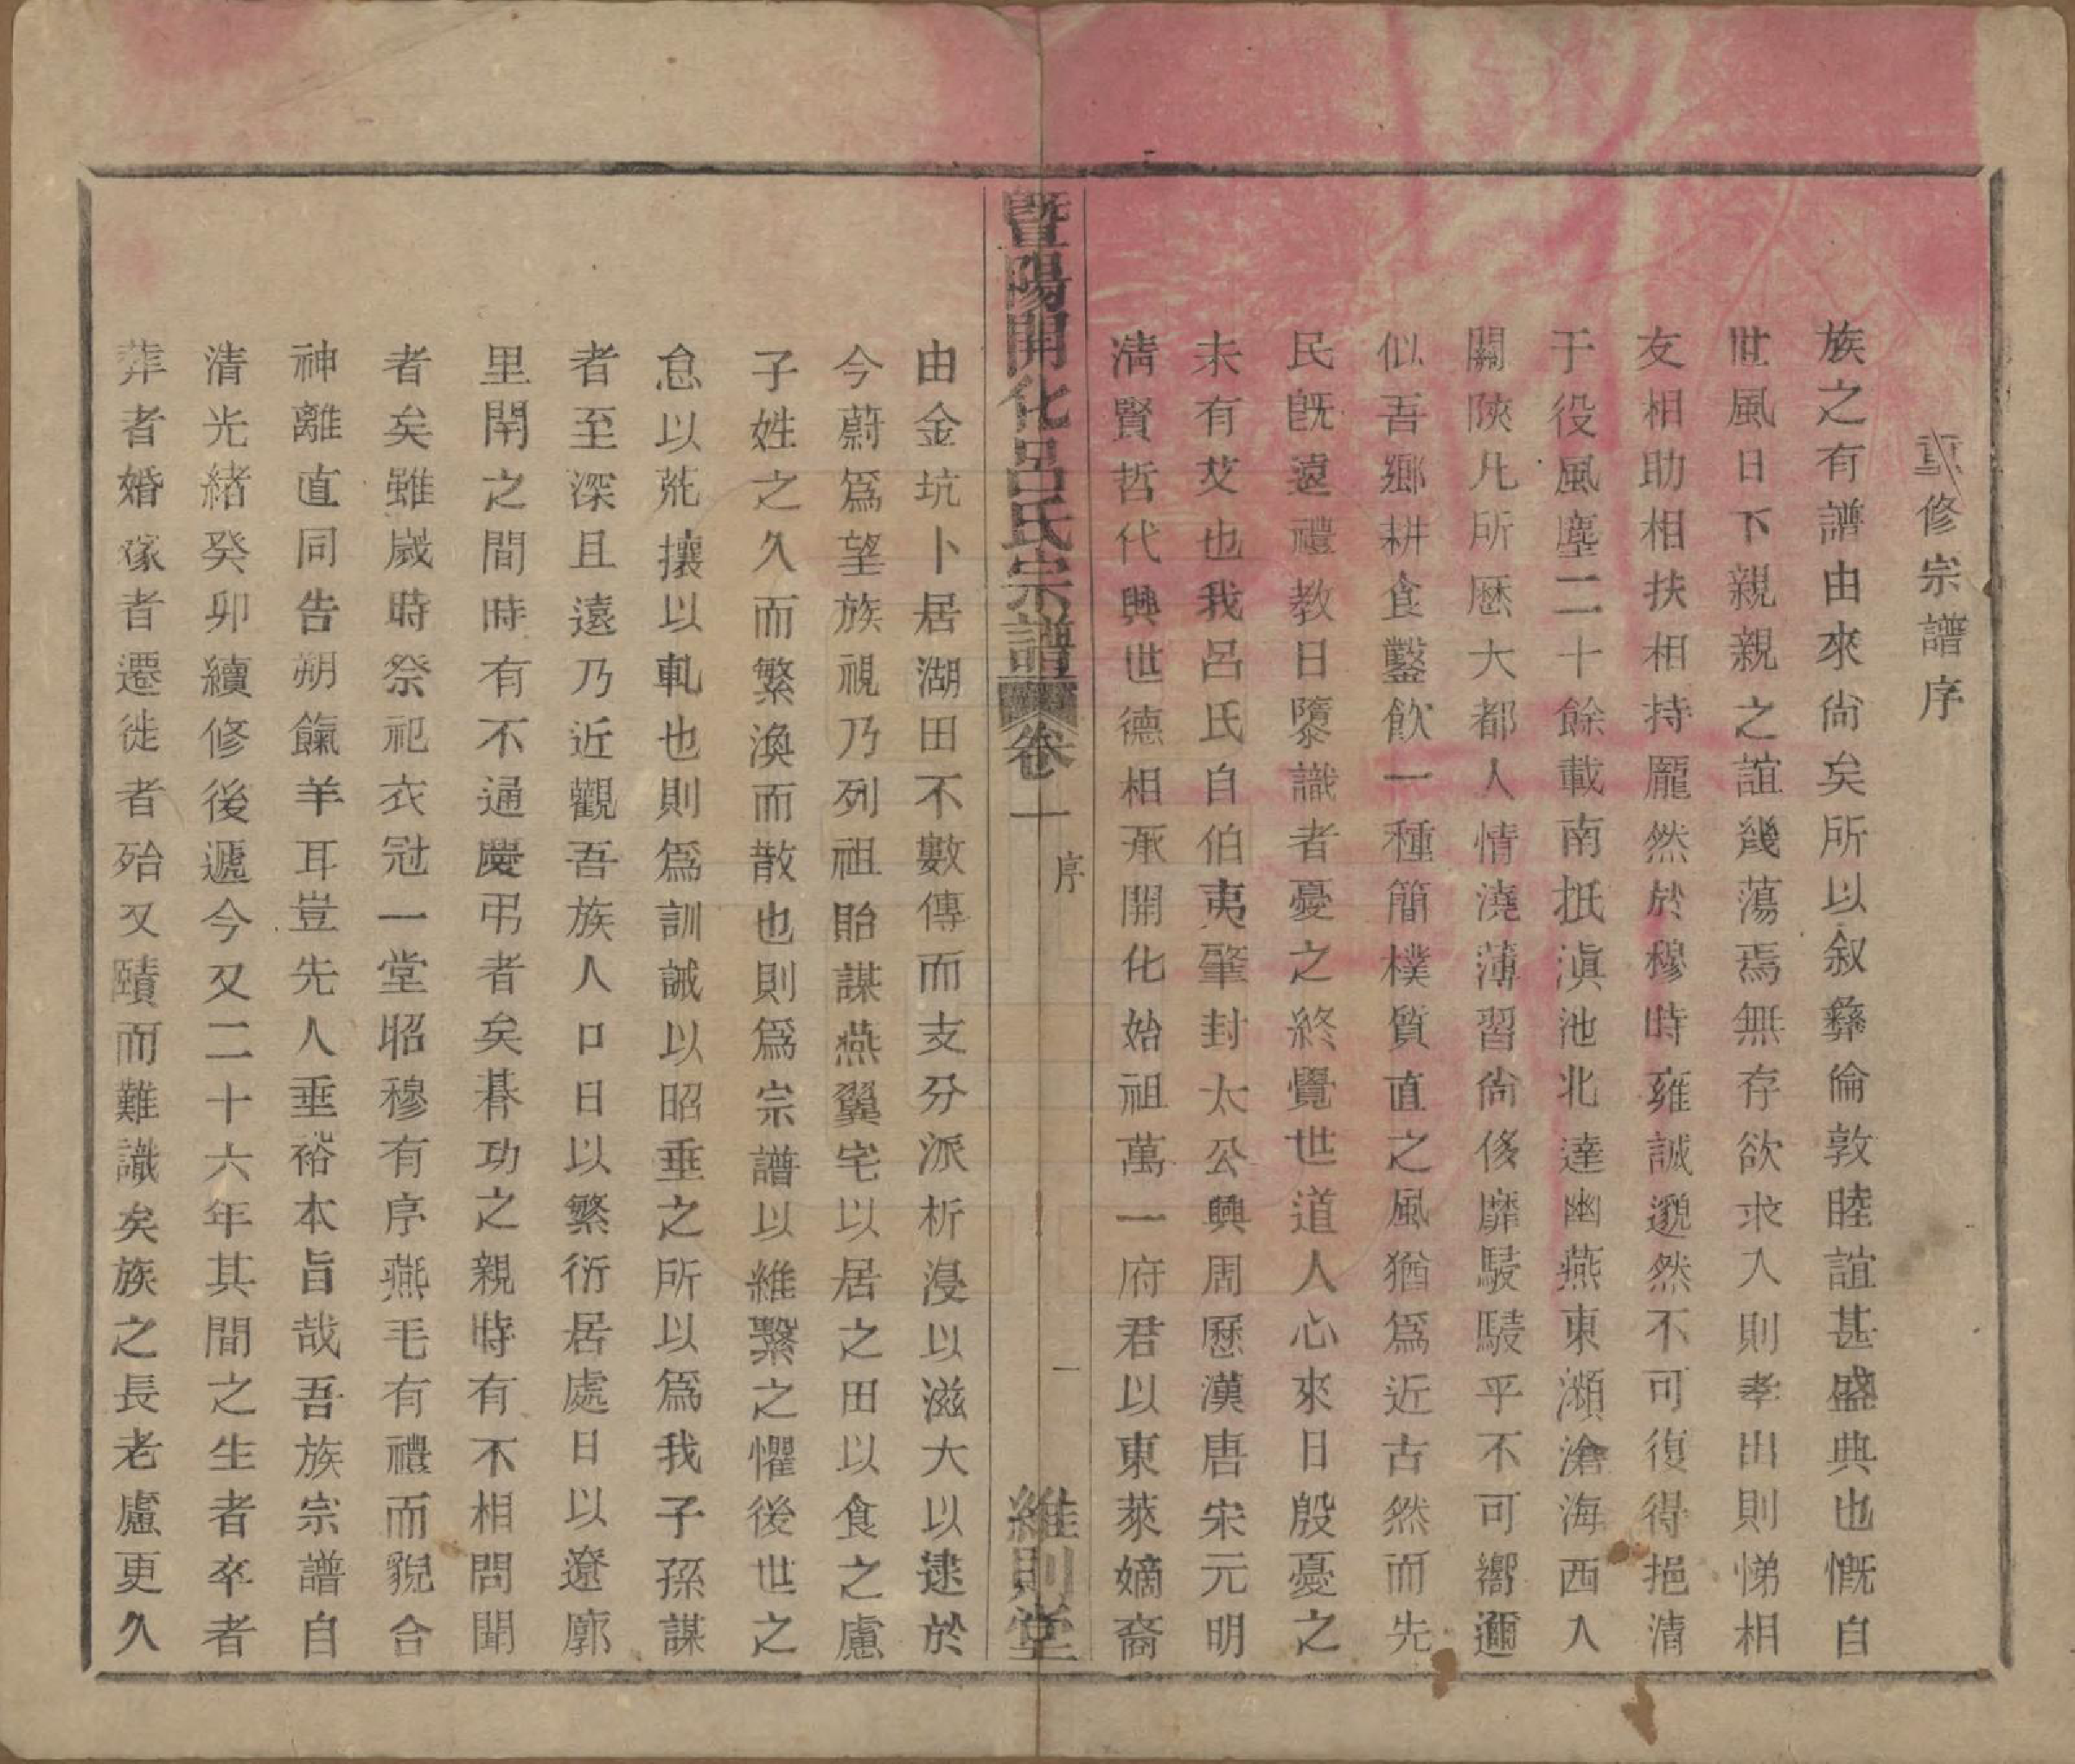 重修宗譜序
族之有譜由來尙矣所以叙彝倫敦睦誼甚盛典也慨自
世風日下親親之誼幾蕩焉無存欲求入則孝出則悌相
友相助相扶相持龐然於穆時雍誠邈然不可復得挹清
于役風塵二十餘載南抵滇池北達幽燕東瀕滄海西入
關陝凡所歷大都人情澆薄習尙侈靡駸駸乎不可嚮邇
似吾鄉耕食鑿飲一種簡樸質直之風猶爲近古然而先
民旣遠禮教日隳識者憂之終覺世道人心來日殷憂之
未有艾也我呂氏自伯夷肇封太公興周歷漢唐宋元明
清賢哲代興世德相承開化始祖萬一府君以東萊嫡裔
暨陽開化呂氏宗譜 卷十 序 一 維則堂
由金坑卜居湖田不數傳而支分派析浸以滋大以逮於
今蔚爲望族視乃列祖貽謀燕翼宅以居之田以食之慮
子姓之久而繁渙而散也則爲宗譜以維繫之懼後世之
怠以荒攘以軋也則爲訓誡以昭垂之所以爲我子孫謀
者至深且遠乃近觀吾族人口日以繁衍居處日以遼廓
里閈之間時有不通慶弔者矣朞功之親時有不相問聞
者矣雖歲時祭祀衣冠一堂昭穆有序燕毛有禮而貌合
神離直同告朔餼羊耳豈先人垂裕本旨哉吾族宗譜自
清光緒癸卯續修後遞今又二十六年其間之生者卒者
葬者婚嫁者遷徙者殆又賾而難識矣族之長老慮更久